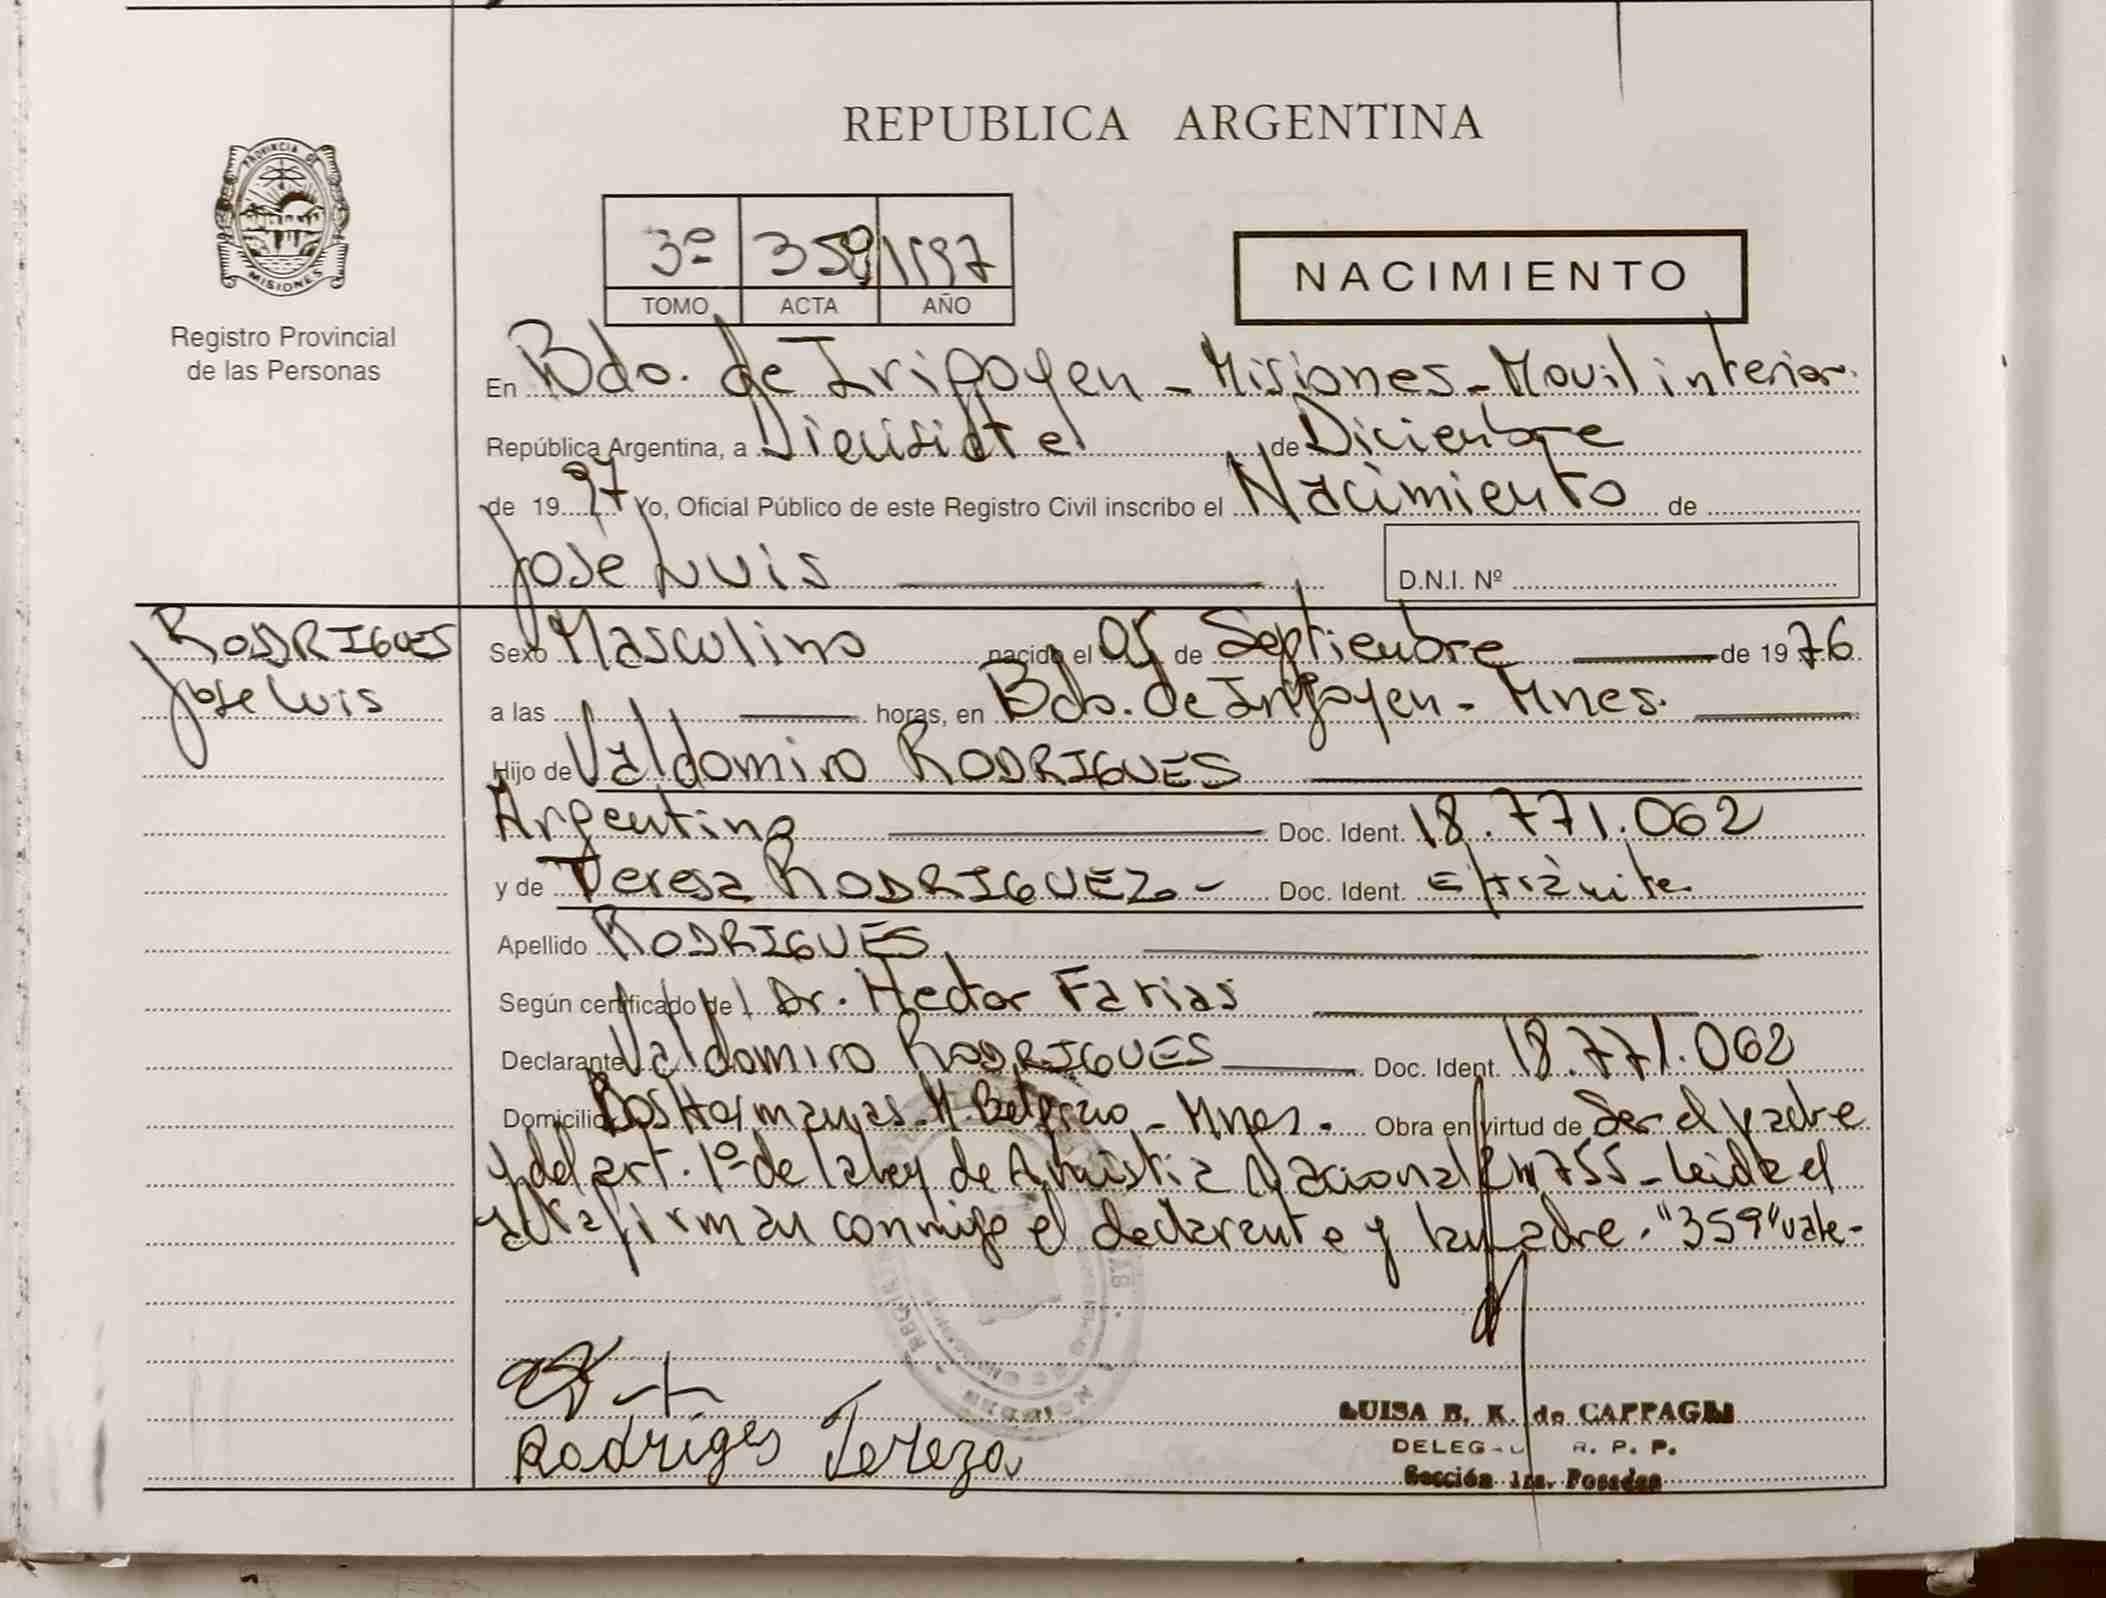 REPUBLICA ARGENTINA
PROVINCIA DE
MISIONES
Registro Provincial
de las Personas
3º 359 1997
TOMO ACTA AÑO
NACIMIENTO
En Bdo. de Irigoyen - Misiones - Movil interior.
República Argentina, a Diecisiete de Diciembre
de 1997 Yo, Oficial Público de este Registro Civil inscribo el Nacimiento de
José Luis
D.N.I. Nº
RODRIGUES
José Luis
Sexo Masculino nacido el 05 de Septiembre de 1976
a las horas, en Bdo. de Irigoyen - Mnes.
Hijo de Valdomiro RODRIGUES
Argentino Doc. Ident. 18.771.062
y de Teresa RODRIGUEZ.- Doc. Ident. En trámite
Apellido RODRIGUES
Según certificado del Dr. Hector Farias
Declarante Valdomiro RODRIGUES Doc. Ident. 18.771.062
Domicilio Dos Hermanas - M. Belgrano - Mnes. Obra en virtud de Ser el padre
y del art. 1º de la ley de Amnistia Nacional 24755 - Leida el
acta firman conmigo el declarante y la madre. "359" vale-
Rodriges Tereza
LUISA B. K. de CAPPAGLI
R. P. P.
Sección 1ra. Posadas